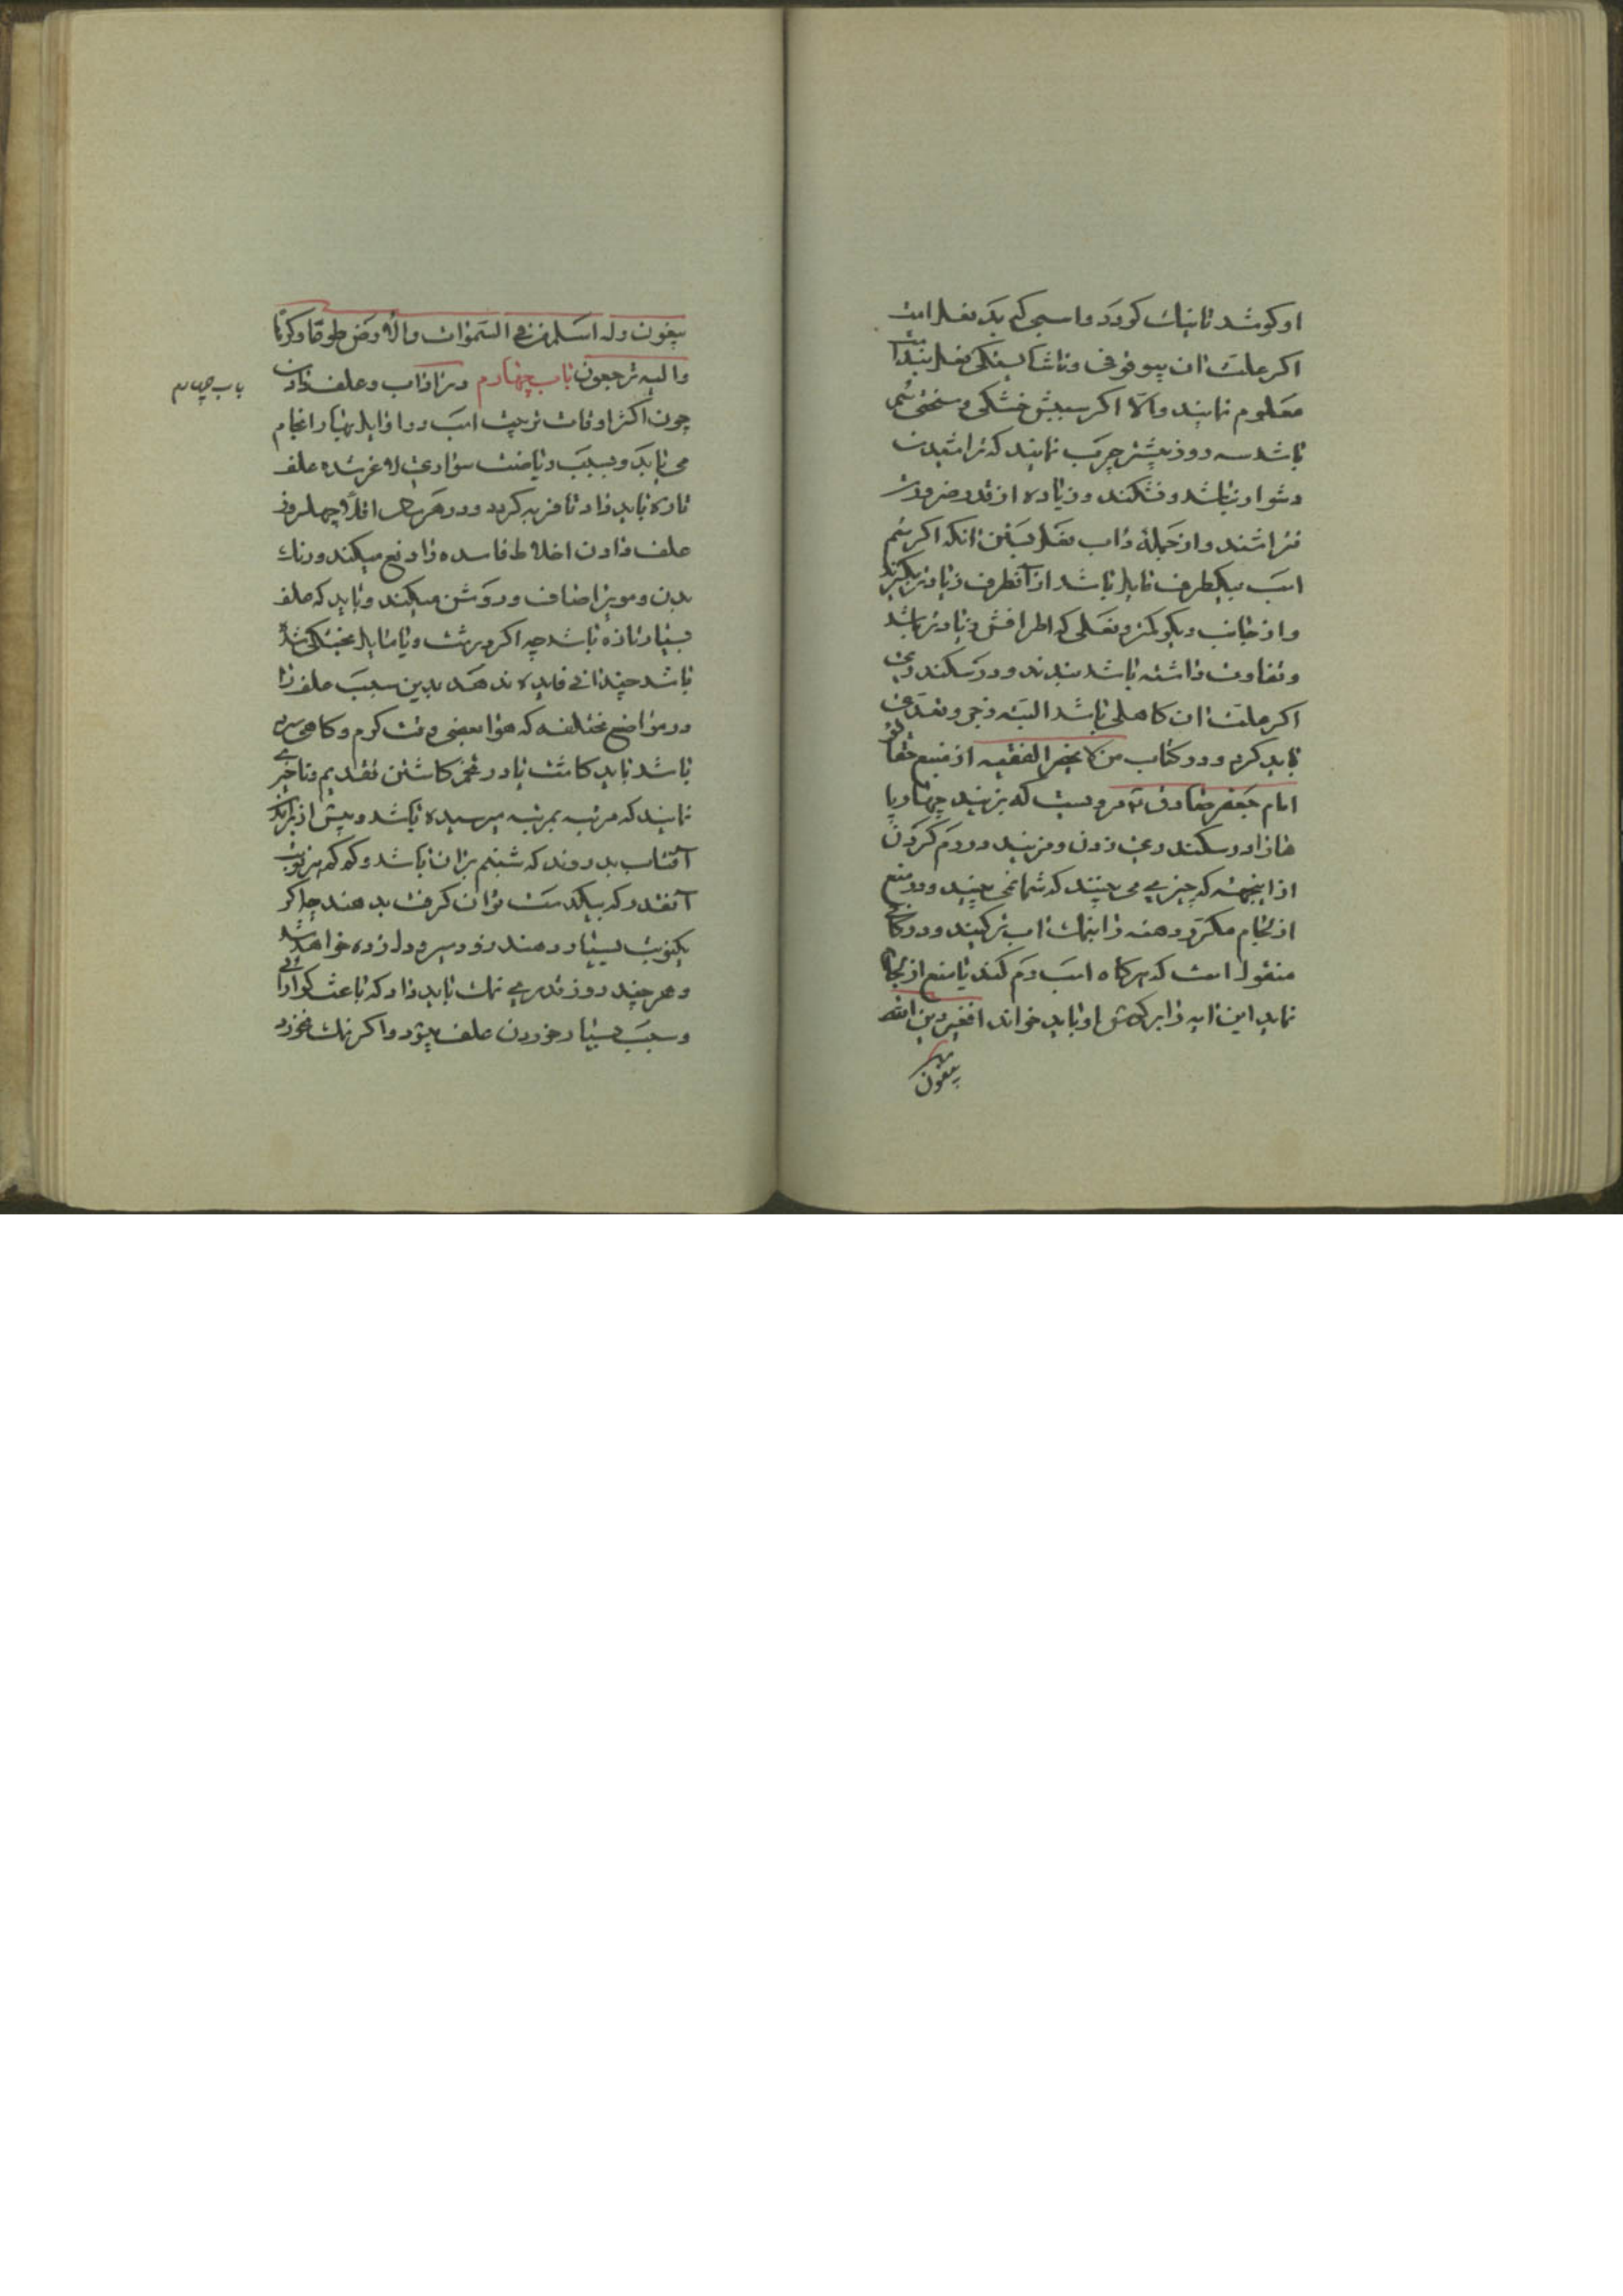 او کوشد تا نیک کردد و اسبی که بد نعل است
اکر علت آن بیوقوفی و ناشایستکی نعلبند است
معلوم نمایند والّا اکر سببش خشکی و سختی سُم
باشد سه روز پیشتر چرب نمایند که تراشیدن
دشوار نباشد و نشکند و زیاده از قدر ضرورت
نتراشند و از جمله داب نعل بستن انکه اکر سُم
اسب بیکطرف مایل باشد از آنطرف زیادتر بکیرند
و از جانب دیکر کمتر و نعلی که اطرافش زیادتر باشد
و تفاوت داشته باشد ببندند و در سکندری
اکر علت ان کاهلی باشد البته زجر و تعدی
باید کرد و در کتاب من لا یحضر الفقیه از منبع حقایق
امام جعفر صادق ع مرویست که بزنید چهارپا
هازا در سکندری زدن و مزنید در رم کردن
از اینجهة که چیزی می بینند که شما نمی بینید و در منع
از لجام مکرر دهنه را بنمک اب تر کنید و در کافی
منقول است که هرکاه اسب رم کند یا منع از لجام
نماید این آیه را بر کوش او باید خواند افغیر دین الله
یبغون
یبغون وله اسلم من فی السموات والأرض طوعًا وکرهًا
والیه ترجعون باب چهارم در اداب و علف دادن
باب چهارم
چون اکثر اوقات تربیت اسب در اوایل بهار انجام
می یابد و بسبب ریاضت سواری لاغر شده علف
تازه باید داد تا فربه کردد و در هر سال اقلاً چهل روز
علف دادن اخلاط فاسده را دفع میکند و رنک
بدن و مو را صاف و روشن میکند و باید که علف
بسیار تازه باشد چه اکر درشت و یا مایل بخشکی شده
باشد چندانی فایده ندهد بدین سبب علف را
در مواضع مختلفه که هوا بعضی وقت کرم و کاهی سرد
باشد باید کاشت یا در تخم کاشتن تقدیم و تاخیری
نمایند که مرتبه بمرتبه میرسیده باشد و پیش از برآمدن
آفتاب بدروند که شبنم بران باشد و کم کم هر نوبت
آنقدر که بیکدست توان کرفت بدهند چه اکر
یکنوبت بسیار دهند زود سیر و دل زده خواهد شد
و هر چند روز قدری نمک باید داد که باعث کوارائی
و سبب بسیار خوردن علف میشود و اکر نمک نخورد